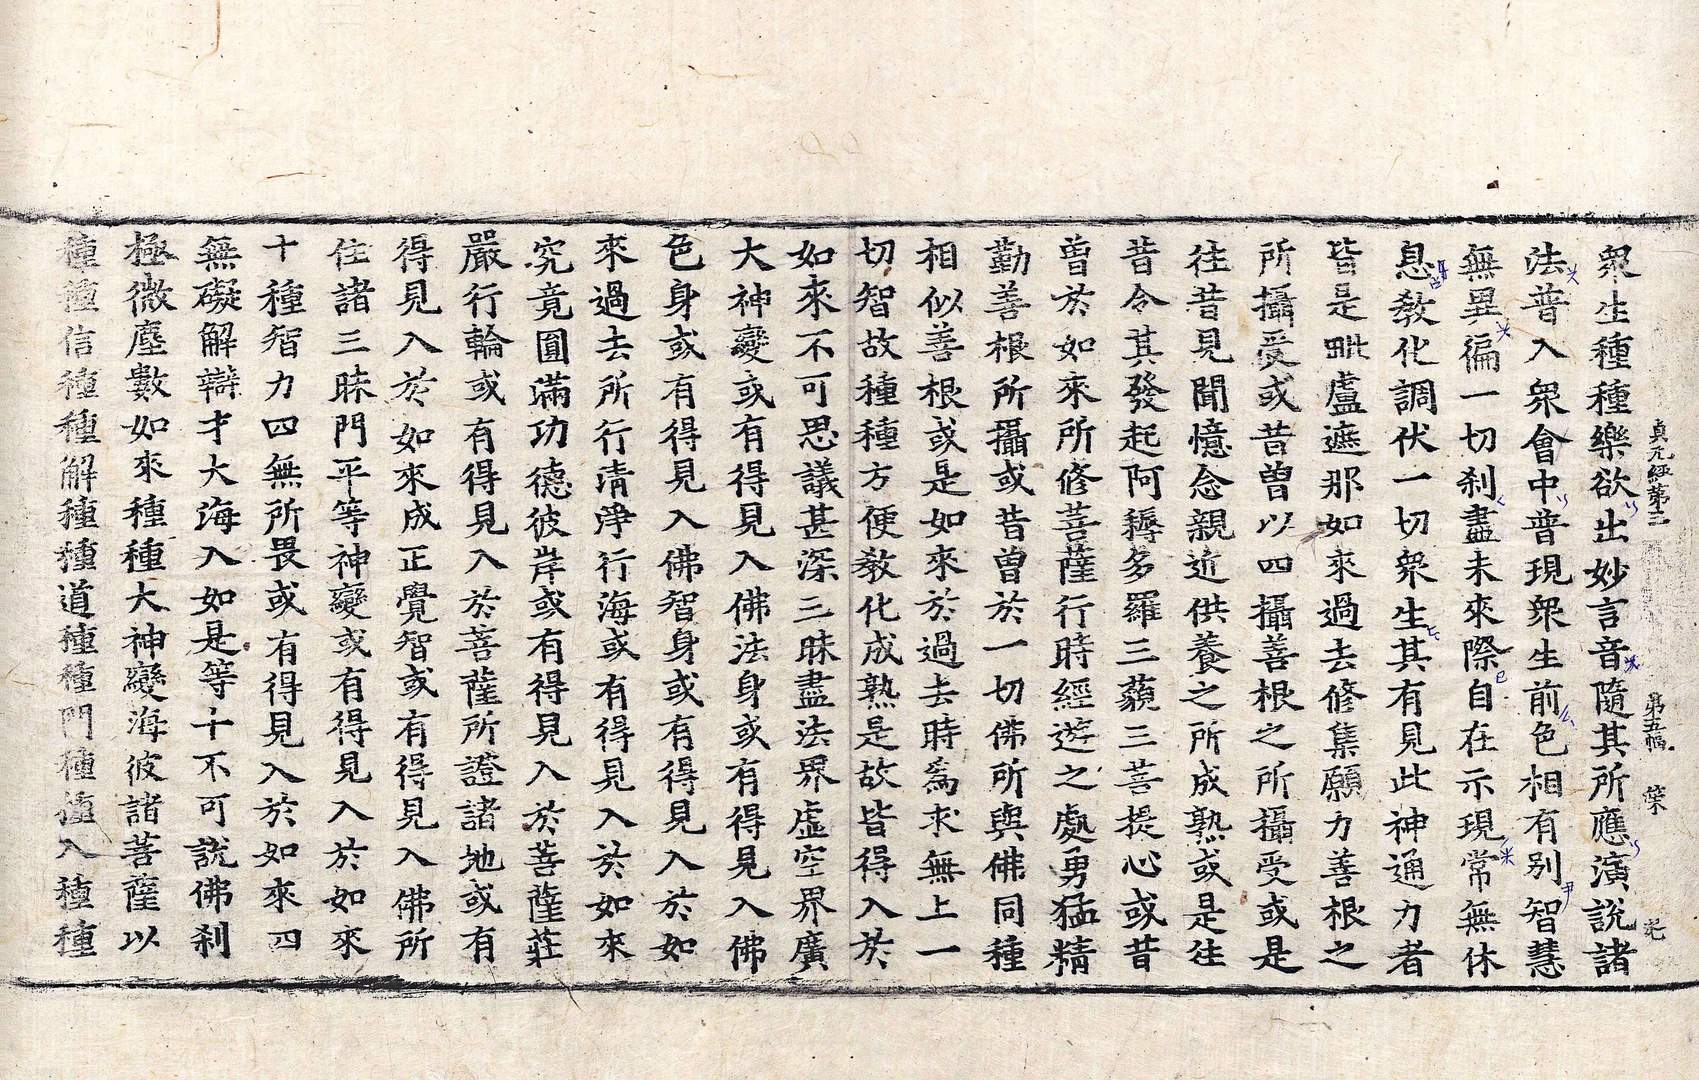 貞元經第二 第五幅 葉
衆生種種樂欲出妙言音隨其所應演說諸
法普入衆會中普現衆生前色相有別智慧
無異徧一切刹盡未來際自在示現常無休
息敎化調伏一切衆生其有見此神通力者
皆是毗盧遮那如來過去修集願力善根之
所攝受或昔曾以四攝善根之所攝受或是
往昔見聞憶念親近供養之所成熟或是往
昔令其發起阿耨多羅三藐三菩提心或昔
曾於如來所修菩薩行時經遊之處勇猛精
勤善根所攝或昔曾於一切佛所與佛同種
相似善根或是如來於過去時爲求無上一
切智故種種方便敎化成熟是故皆得入於
如來不可思議甚深三昧盡法界虛空界廣
大神變或有得見入佛法身或有得見入佛
色身或有得見入佛智身或有得見入於如
來過去所行清淨行海或有得見入於如來
究竟圓滿功德彼岸或有得見入於菩薩莊
嚴行輪或有得見入於菩薩所證諸地或有
得見入於如來成正覺智或有得見入佛所
住諸三昧門平等神變或有得見入於如來
十種智力四無所畏或有得見入於如來四
無礙解辯才大海入如是等十不可說佛刹
極微塵數如來種種大神變海彼諸菩薩以
種種信種種解種種道種種門種種入種種